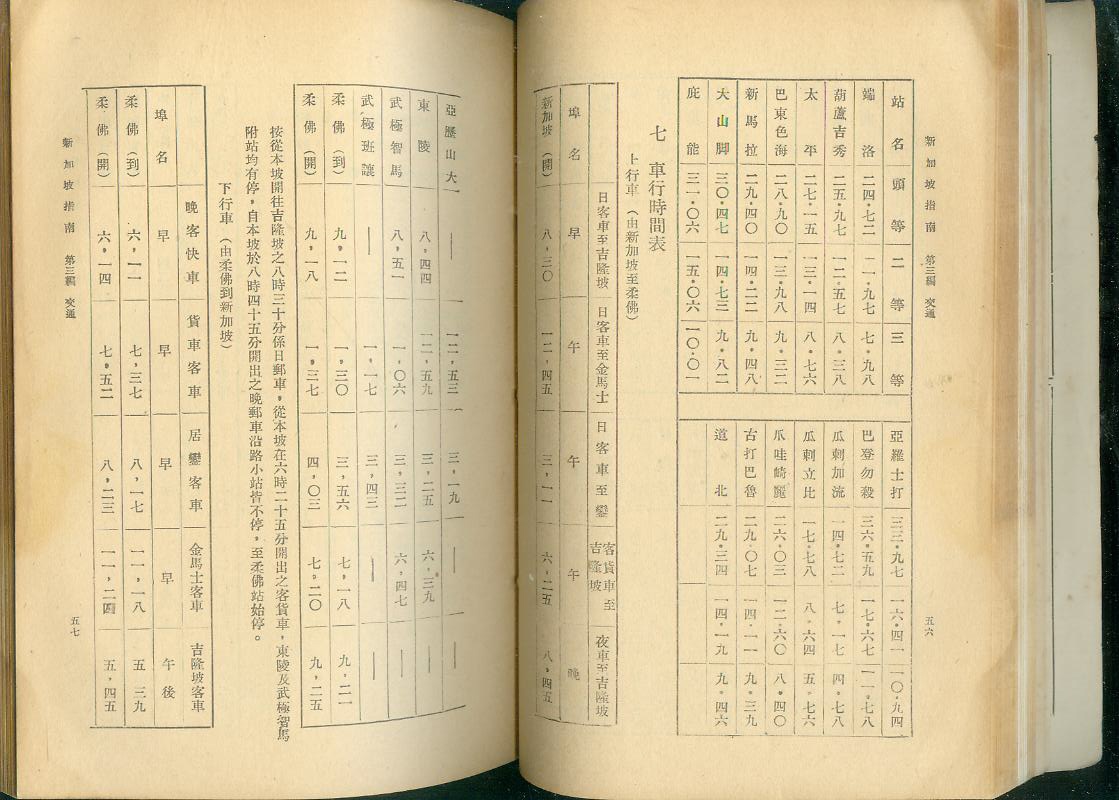 新加坡指南　第三編　交通
五六
站名　頭等　二等　三等
端洛　二四·七二　一一·九七　七·九八
葫蘆吉秀　二五·九七　一二·五七　八·三八
太平　二七·一五　一三·一四　八·七六
巴東色海　二八·九〇　一三·九八　九·三二
新馬拉　二九·四〇　一四·二二　九·四八
大山脚　三〇·四七　一四·七三　九·八二
庇能　三一·〇六　一五·〇六　一〇·〇一
亞羅士打　三三·九七　一六·四一　一〇·九四
巴登勿殺　三六·五九　一七·六七　一一·七八
瓜刺加流　一四·七二　七·一七　四·七八
瓜刺立比　一七·七八　八·六四　五·七六
爪哇崎　二六·〇三　一二·六〇　八·四〇
古打巴魯　二九·〇七　一四·一一　九·三九
道北　二九·三四　一四·一九　九·四六
七　車行時間表
上行車（由新加坡至柔佛）
日客車至吉隆坡　日客車至金馬士　日客車至鑾　客貨車至吉隆坡　夜車至吉隆坡
埠名　早　午　午　午　晚
新加坡（開）　八，三〇　一二，四五　三，一一　六，二五　八，四五
亞歷山大　——　一二，五三　三，一九　——　——
東陵　八，四四　一二，五九　三，二五　六，三九　——
武極智馬　八，五一　一，〇六　三，三二　六，四七　——
武極班讓　——　一，一七　三，四三　——　——
柔佛（到）　九，一二　一，三〇　三，五六　七，一八　九，二一
柔佛（開）　九，一八　一，三七　四，〇三　七，二〇　九，二五
按從本坡開往吉隆坡之八時三十分係日郵車，從本坡在六時二十五分開出之客貨車，東陵及武極智馬
附站均有停，自本坡於八時四十五分開出之晚郵車沿路小站皆不停，至柔佛站始停。
下行車（由柔佛到新加坡）
晚客快車　貨車客車　居鑾客車　金馬士客車　吉隆坡客車
埠名　早　早　早　早　午後
柔佛（到）　六，一一　七，三七　八，一七　一一，一八　五，三九
柔佛（開）　六，一四　七，五二　八，二三　一一，二四　五，四五
新加坡指南　第三編　交通
五七